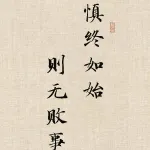 慎终如始
则无败事